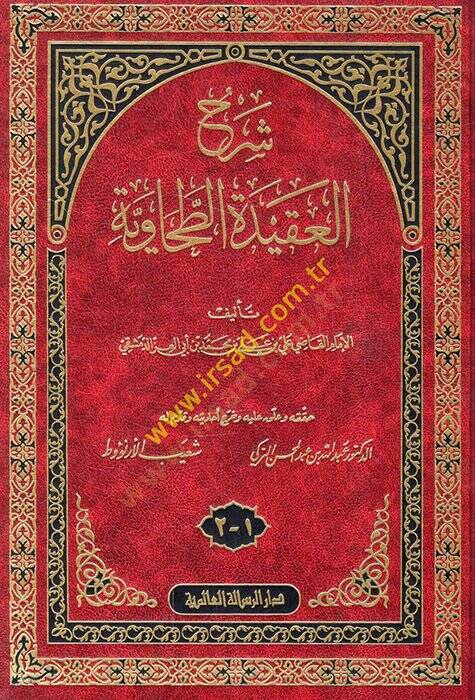 شرح
العقيدة الطحاوية
تأليف
الإمام القاضي علي بن علي بن محمد بن أبي العز الدمشقي
حققه وعلق عليه وخرج أحاديثه وقدم له
الدكتور عبد الله بن عبد المحسن التركي شعيب الأرنؤوط
١-٢
دار الرسالة العالمية
www.irsad.com.tr